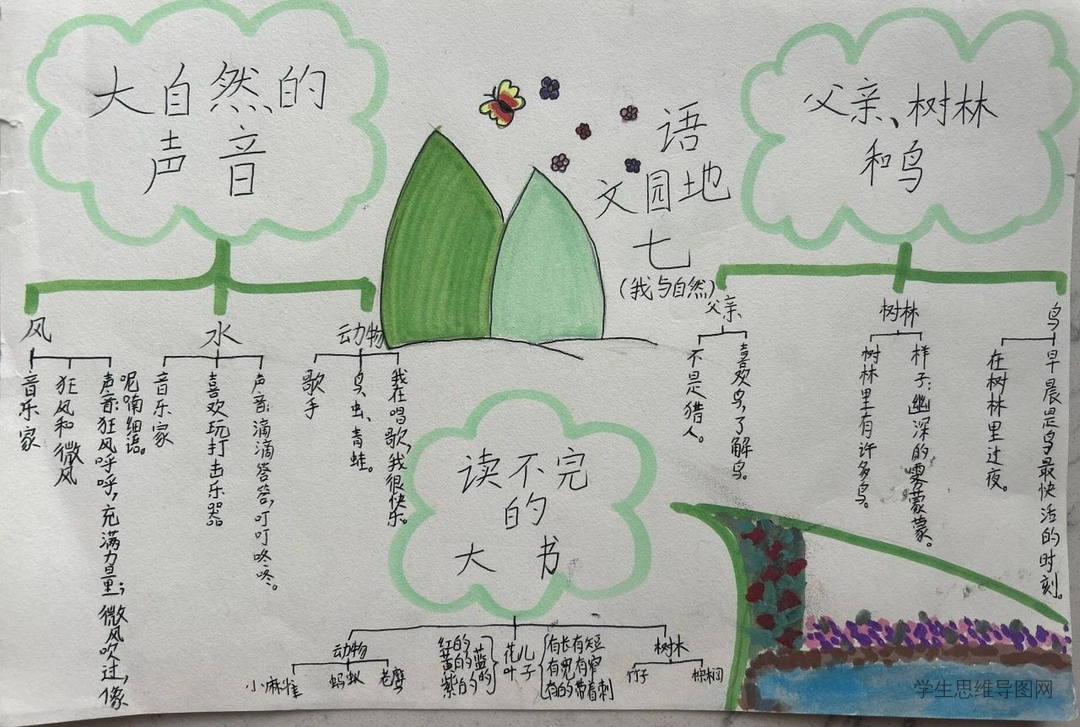 大自然的
声音
风
音乐家
狂风和微风
声音:狂风呼呼,充满力量;微风吹过,像
呢喃细语。
水
音乐家
喜欢玩打击乐器
声音:滴滴答答,叮叮咚咚。
动物
歌手
鸟、虫、青蛙。
我在唱歌,我很快乐。
语
文园地
七
(我与自然)
父亲、树林
和鸟
父亲
不是猎人。
喜欢鸟,了解鸟。
树林
树林里有许多鸟。
样子:幽深的雾蒙蒙。
鸟
在树林里过夜。
早晨是鸟最快活的时刻。
读不完
的
大书
动物
小麻雀
蚂蚁
老鹰
红的蓝的
黄的白的
紫的
花儿
叶子
有长有短
有宽有窄
有的带着刺
树木
竹子
棕榈
学生思维导图网